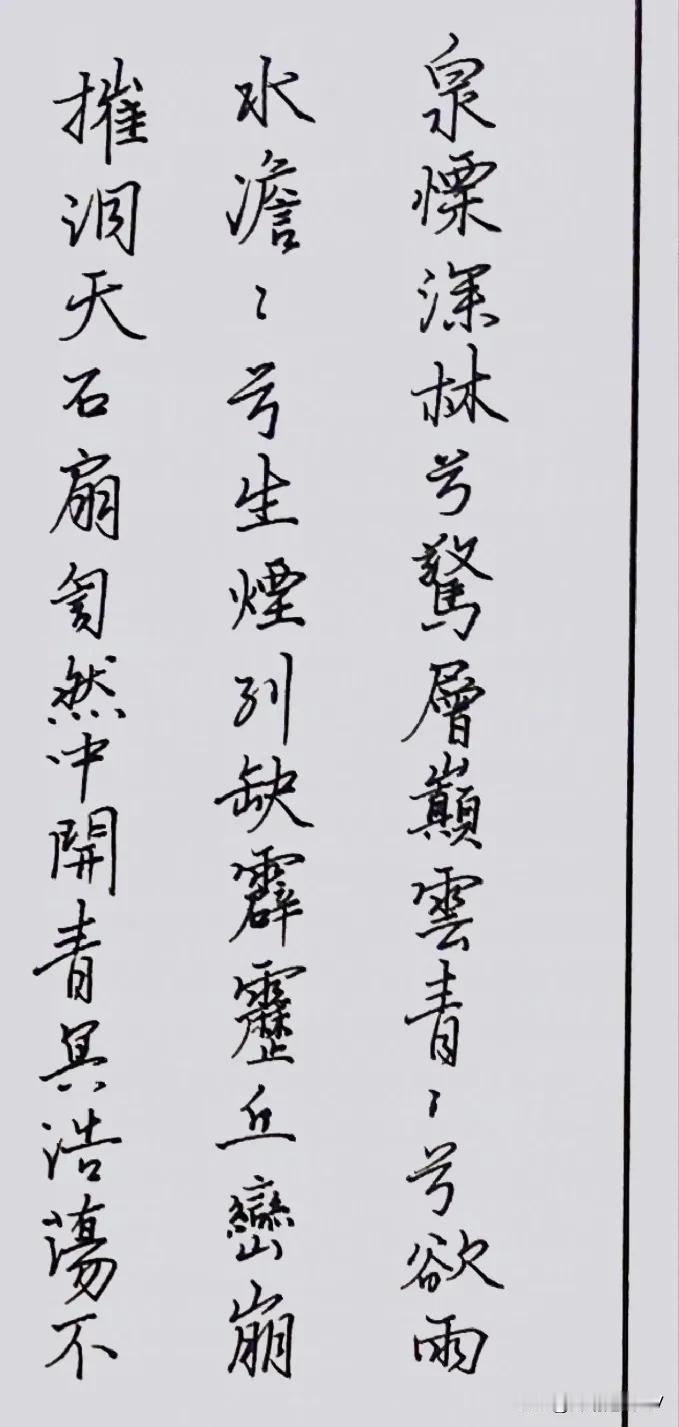 泉慄深林兮驚層巔雲青〻兮欲雨
水澹〻兮生煙列缺霹靂丘巒崩
摧洞天石扇訇然中開青冥浩蕩不